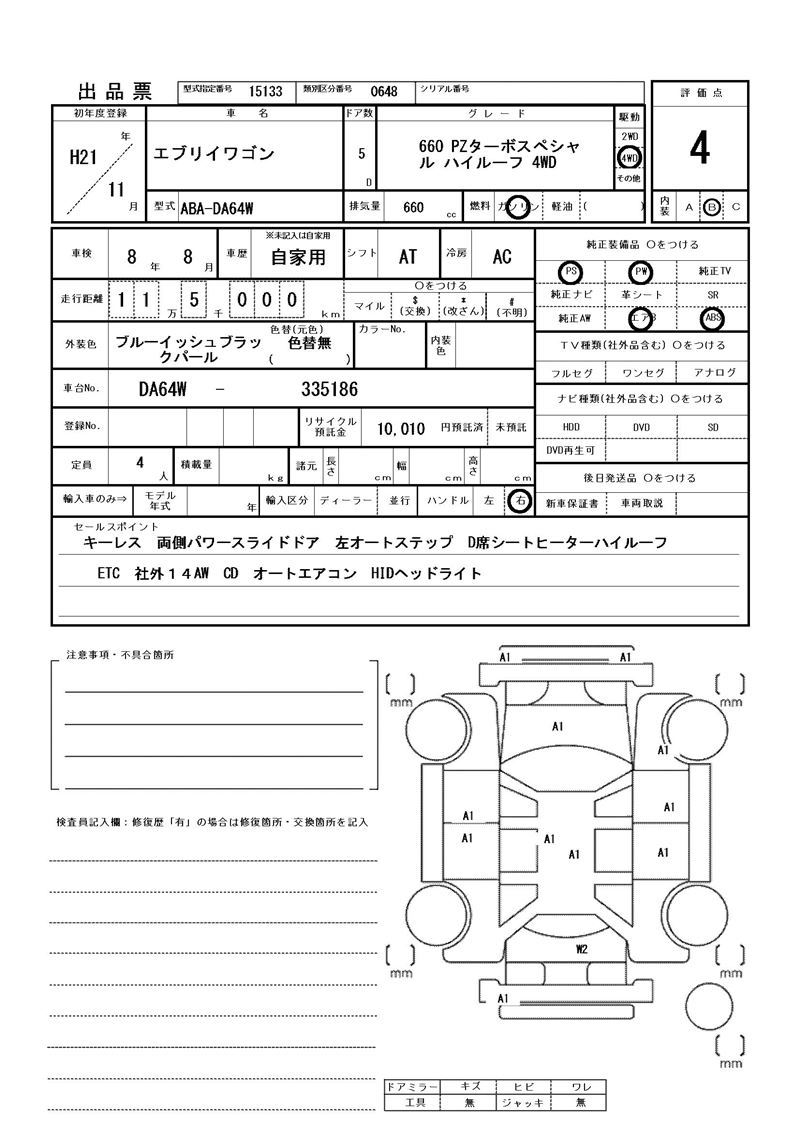 出品票
型式指定番号 15133 類別区分番号 0648 シリアル番号
評価点
4
内装 A B C
初年度登録 車名 ドア数 グレード 駆動
H21 年 11 月
エブリイワゴン
5 D
660 PZターボスペシャ
ル ハイルーフ 4WD
2WD
4WD
その他
型式 ABA-DA64W 排気量 660 cc 燃料 ガソリン 軽油 ( )
車検 8 年 8 月 車歴 ※未記入は自家用 自家用 シフト AT 冷房 AC
走行距離 11 万 5 千 000 km
○をつける
マイル $(交換) *(改ざん) #(不明)
外装色 ブルーイッシュブラックパール 色替(元色) 色替無 ( ) カラーNo. 内装色
車台No. DA64W - 335186
登録No. リサイクル預託金 10,010 円預託済 未預託
定員 4 人 積載量 kg 諸元 長さ cm 幅 cm 高さ cm
輸入車のみ⇒ モデル年式 年 輸入区分 ディーラー 並行 ハンドル 左 右
純正装備品 ○をつける
PS PW 純正TV
純正ナビ 革シート SR
純正AW エアB ABS
TV種類(社外品含む) ○をつける
フルセグ ワンセグ アナログ
ナビ種類(社外品含む) ○をつける
HDD DVD SD
DVD再生可
後日発送品 ○をつける
新車保証書 車両取説
セールスポイント
キーレス 両側パワースライドドア 左オートステップ D席シートヒーターハイルーフ
ETC 社外14AW CD オートエアコン HIDヘッドライト
注意事項・不具合箇所
検査員記入欄:修復歴「有」の場合は修復箇所・交換箇所を記入
A1 A1
mm mm
A1
A1
A1 A1
A1 A1 A1
A1
W2
mm mm
A1
mm
ドアミラー キズ ヒビ ワレ
工具 無 ジャッキ 無